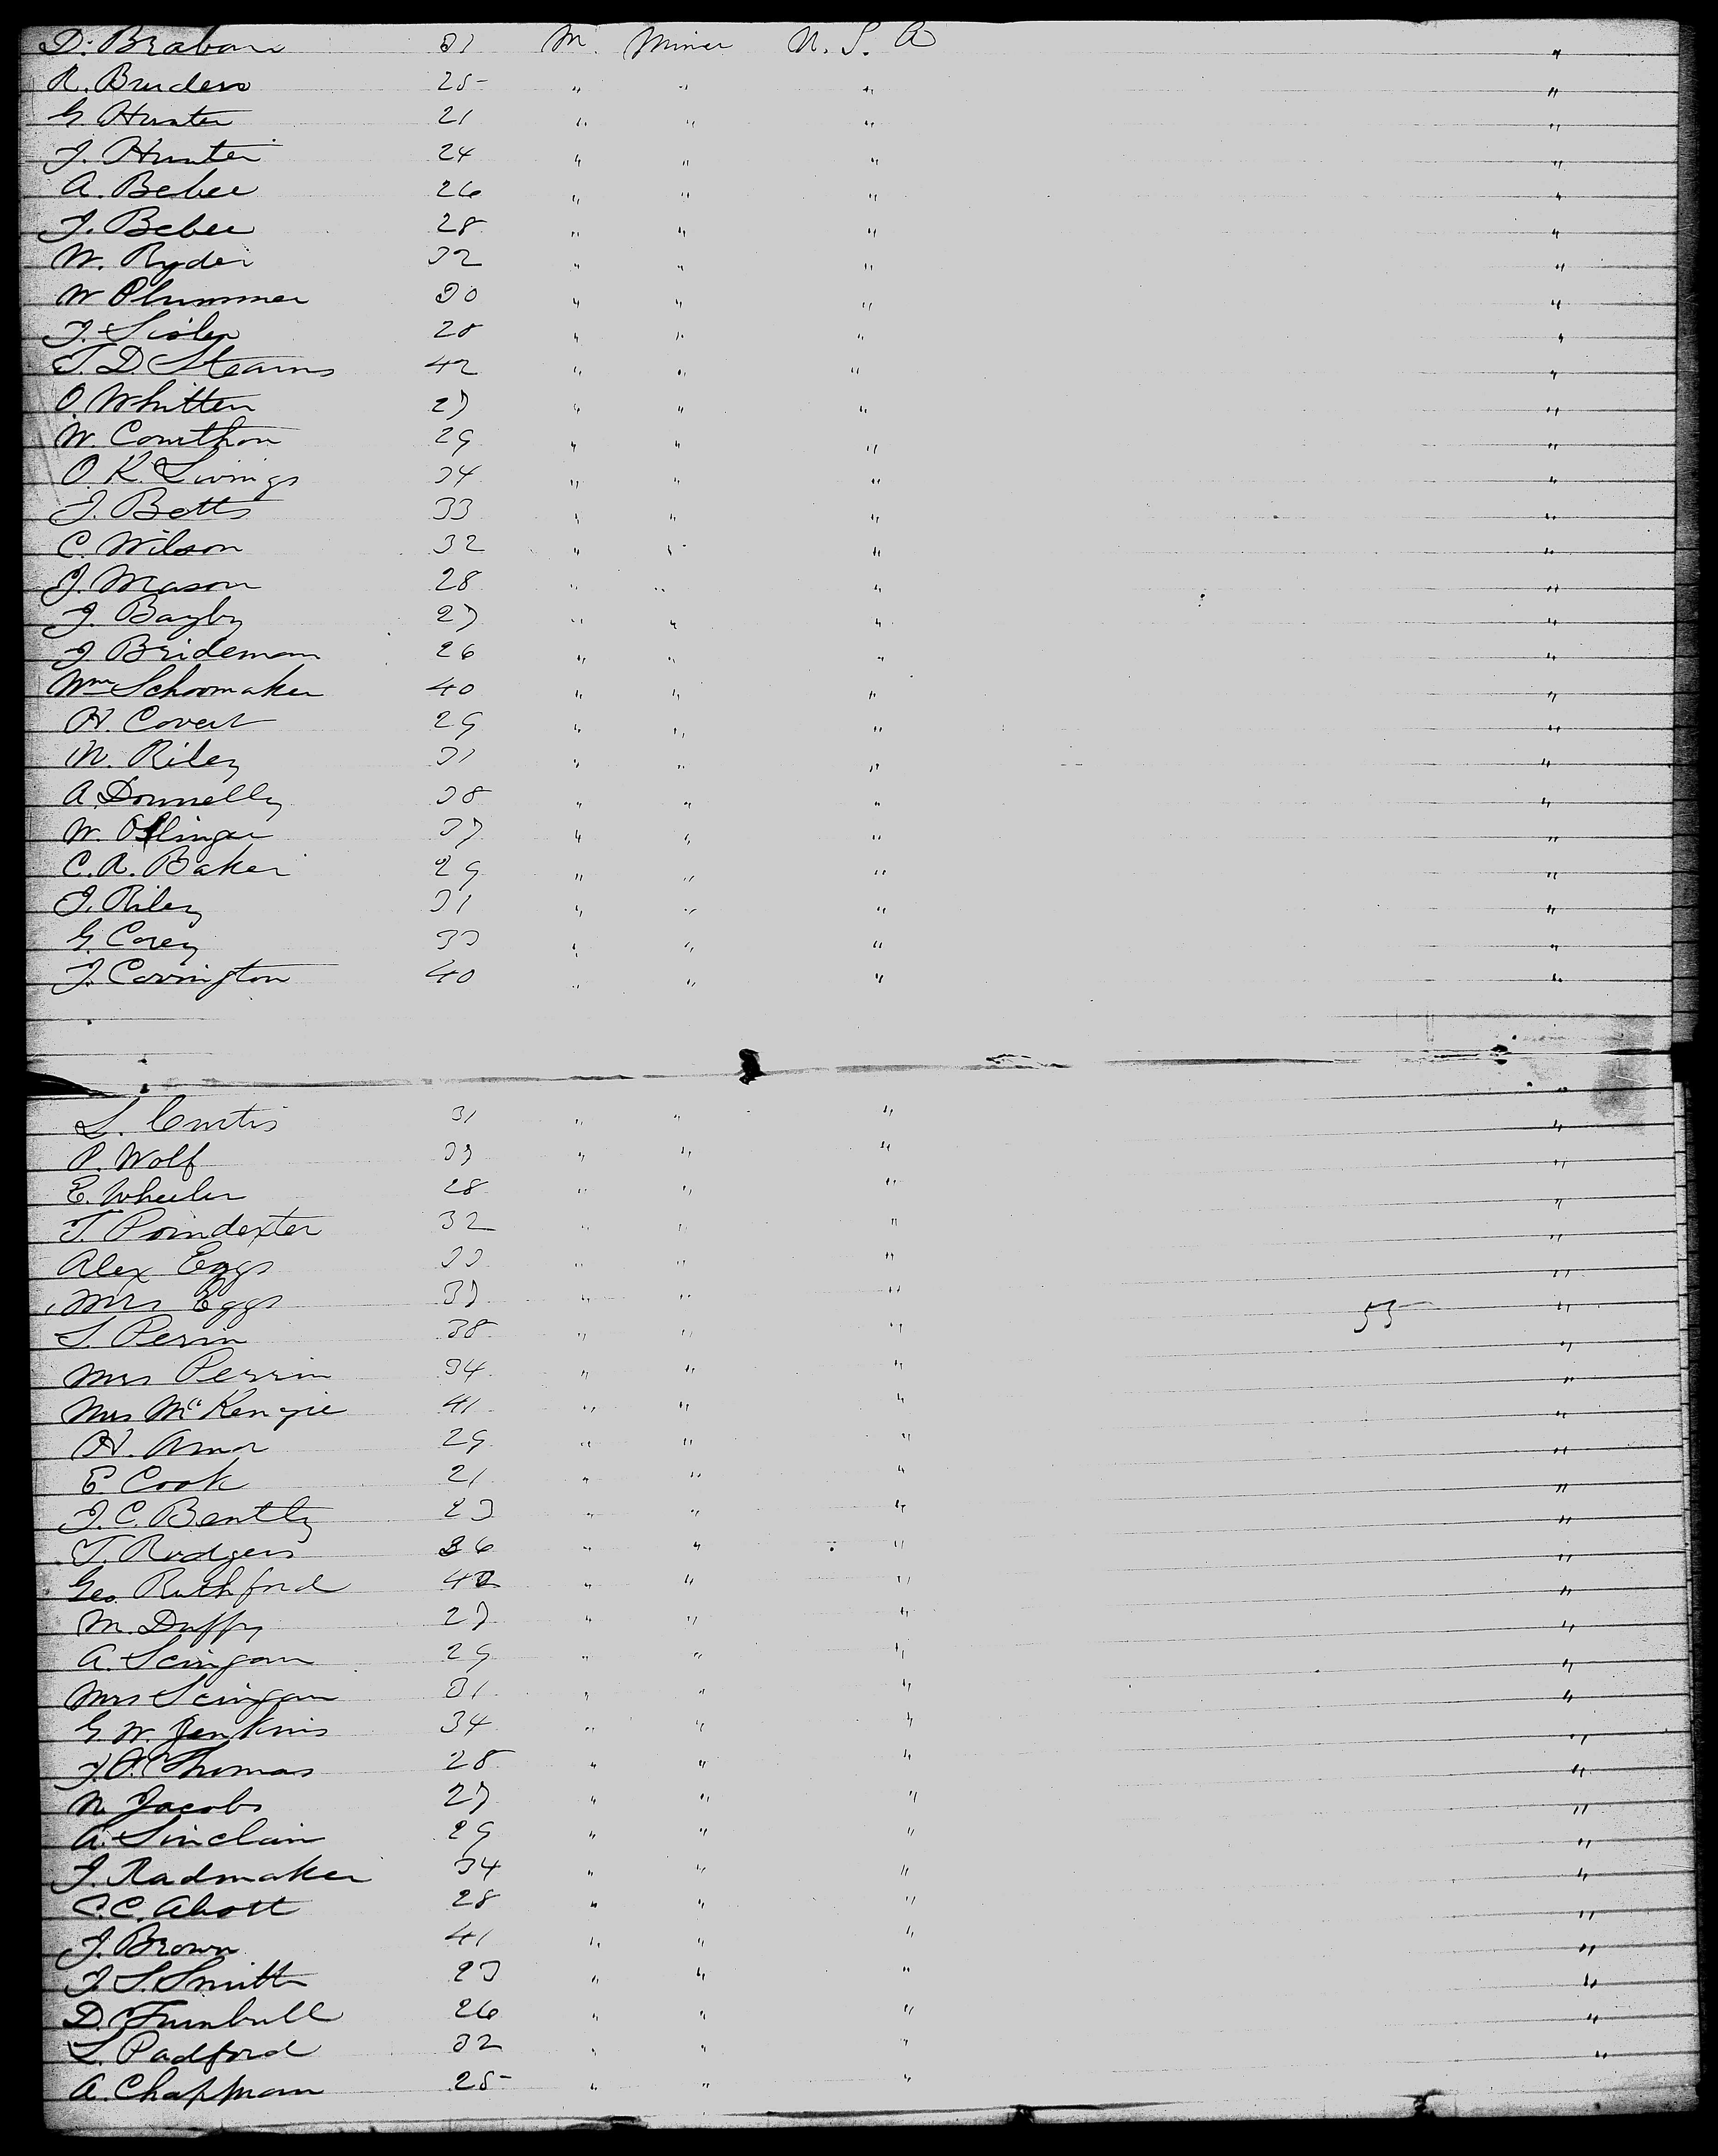 D. Braban 37 M. Miner U. S. A "
R. Bruders 25 " " " "
G Hunter 21 " " " "
J. Hunter 24 " " " "
A. Bebee 26 " " " "
J. Bebee 28 " " " "
W. Ryder 32 " " " "
W Plummer 30 " " " "
J. Sisler 28 " " " "
T. D Stearns 42 " " " "
O. Whitten 27 " " " "
W. Courthon 29 " " " "
O. K. Livings 34 " " " "
J. Betts 33 " " " "
C. Wilson 32 " " " "
J. Mason 28 " " " "
J. Bayby 27 " " " "
J Brideman 26 " " " "
Wm Schoomaker 40 " " " "
H. Covert 29 " " " "
M. Riley 31 " " " "
A. Donnelly 38 " " " "
W. Oslinger 37 " " " "
C. A. Baker 29 " " " "
J. Riley 31 " " " "
G. Corey 33 " " " "
J. Corrington 40 " " " "
L. Curtis 31 " " " "
P. Wolf 37 " " " "
E. Wheeler 28 " " " "
T. Poindexter 32 " " " "
Alex Eggs 33 " " " "
Mrs Eggs 37 " " " 55 "
S. Perin 38 " " " "
Mrs Perrin 34 " " " "
Mrs McKenzie 41 " " " "
H. Amor 29 " " " "
E. Cook 21 " " " "
J. C. Bently 23 " " " "
T. Rodgers 36 " " " "
Geo. Ruthford 42 " " " "
M. Duffy 27 " " " "
A. Scingam 29 " " " "
Mrs Scingam 31 " " " "
G. W. Jenkins 34 " " " "
J. O. Thomas 28 " " " "
N. Jacobs 27 " " " "
A. Sinclair 29 " " " "
J. Radmaker 34 " " " "
C. C. Abott 28 " " " "
J. Brown 41 " " " "
J. S. Smith 23 " " " "
D. Turnbull 26 " " " "
L. Padford 32 " " " "
A. Chapman 25 " " " "